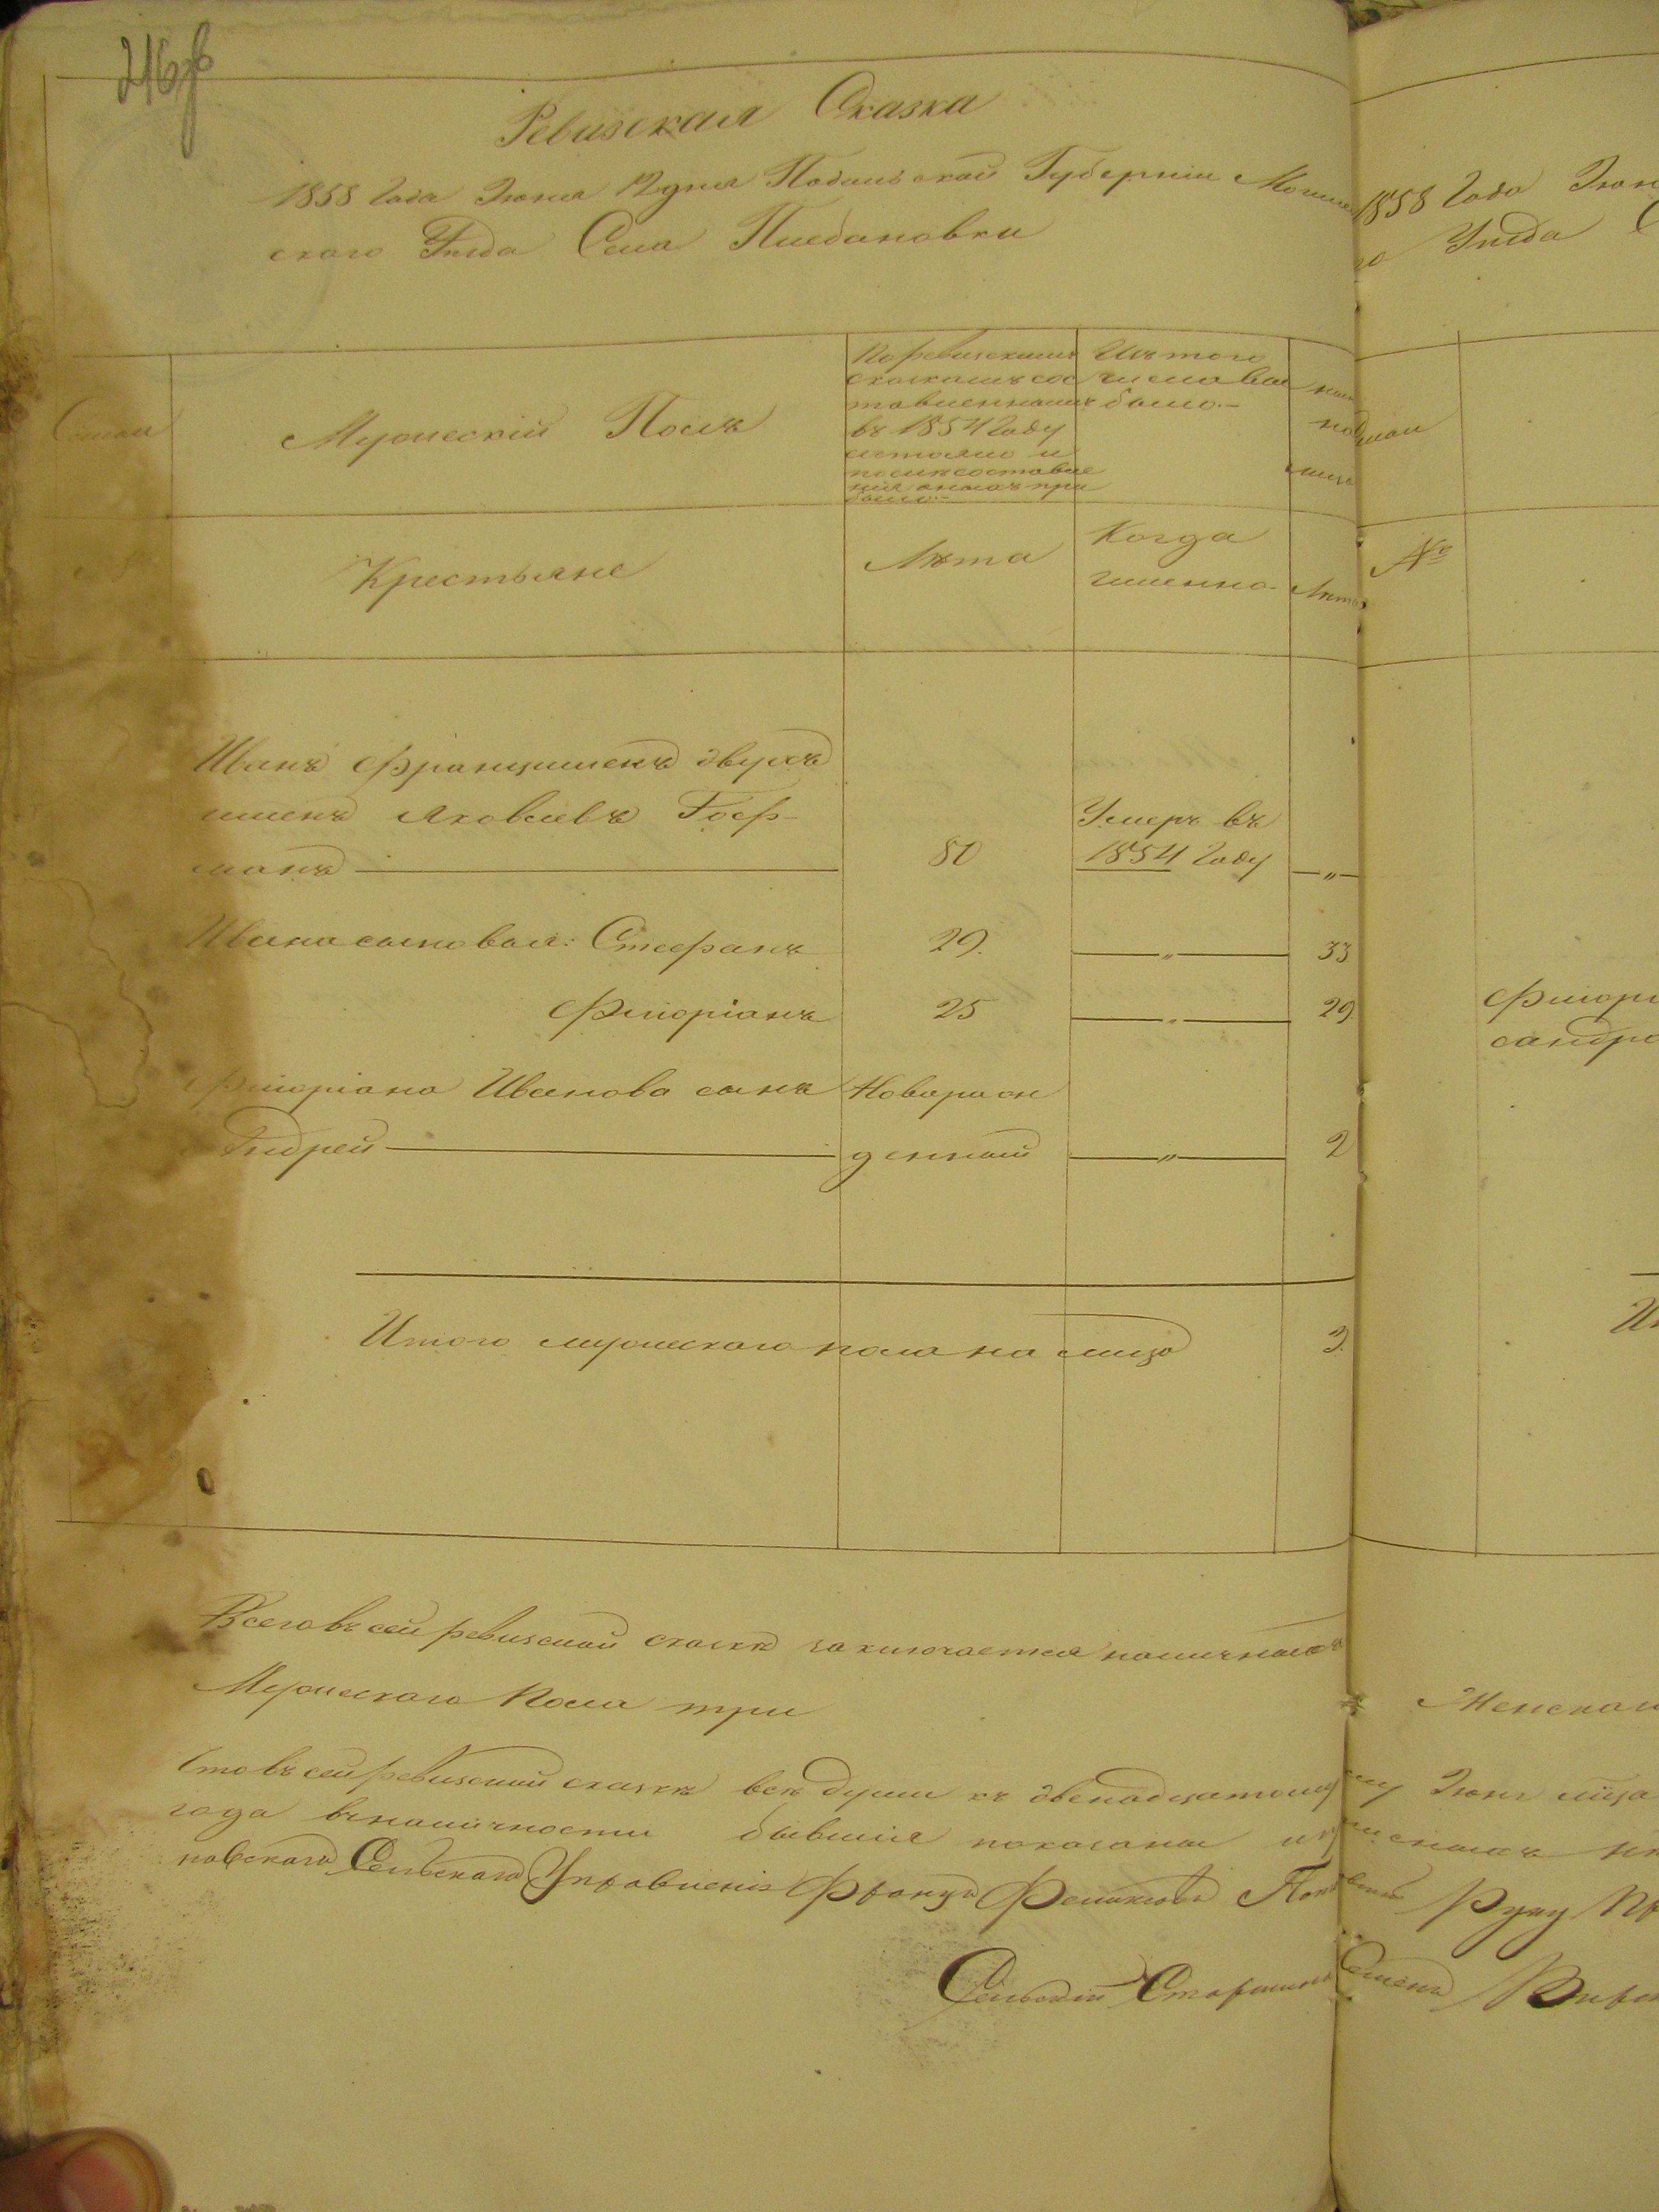 216об
Ревизская Сказка
1858 Года Іюня 12 дня Подольской Губерніи Могиле
скаго Уѣзда Села Плебановки
Мужескій Полъ
По ревизскимъ
сказкамъ сос
тавленнымъ
въ 1854 Году
состояло и
послѣ составле
нія оныхъ при
было.-
Изъ того
числа вы
было.-
Крестьяне
Лѣта
Когда
именно.
Лѣта
Иванъ Францишекъ двухъ
именъ Яковлевъ Гоф-
манъ
80
Умеръ въ
1854 Году
—„—
Ивана сыновья: Стефанъ
29.
—„—
33
Флюріанъ
25
—„—
29
Флюріана Иванова сынъ
Новорож
Андрей
денный
—„—
2
Итого мужескаго пола на лицо
3.
Всего въ сей ревизской сказкѣ заключается наличныхъ
Мужескаго Пола три
Что въ сей ревизской сказкѣ всѣ души къ двенадцатому
года въ наличности бывшія показаны и
новскаго Сельскаго Управленія Францъ
Сельскій Старшина
1858 Года Іюн
го Уѣзда С
№
Флюрі
сандро
Ит
Женскаго
му Іюня мѣсца
Руку Пр
Семенъ